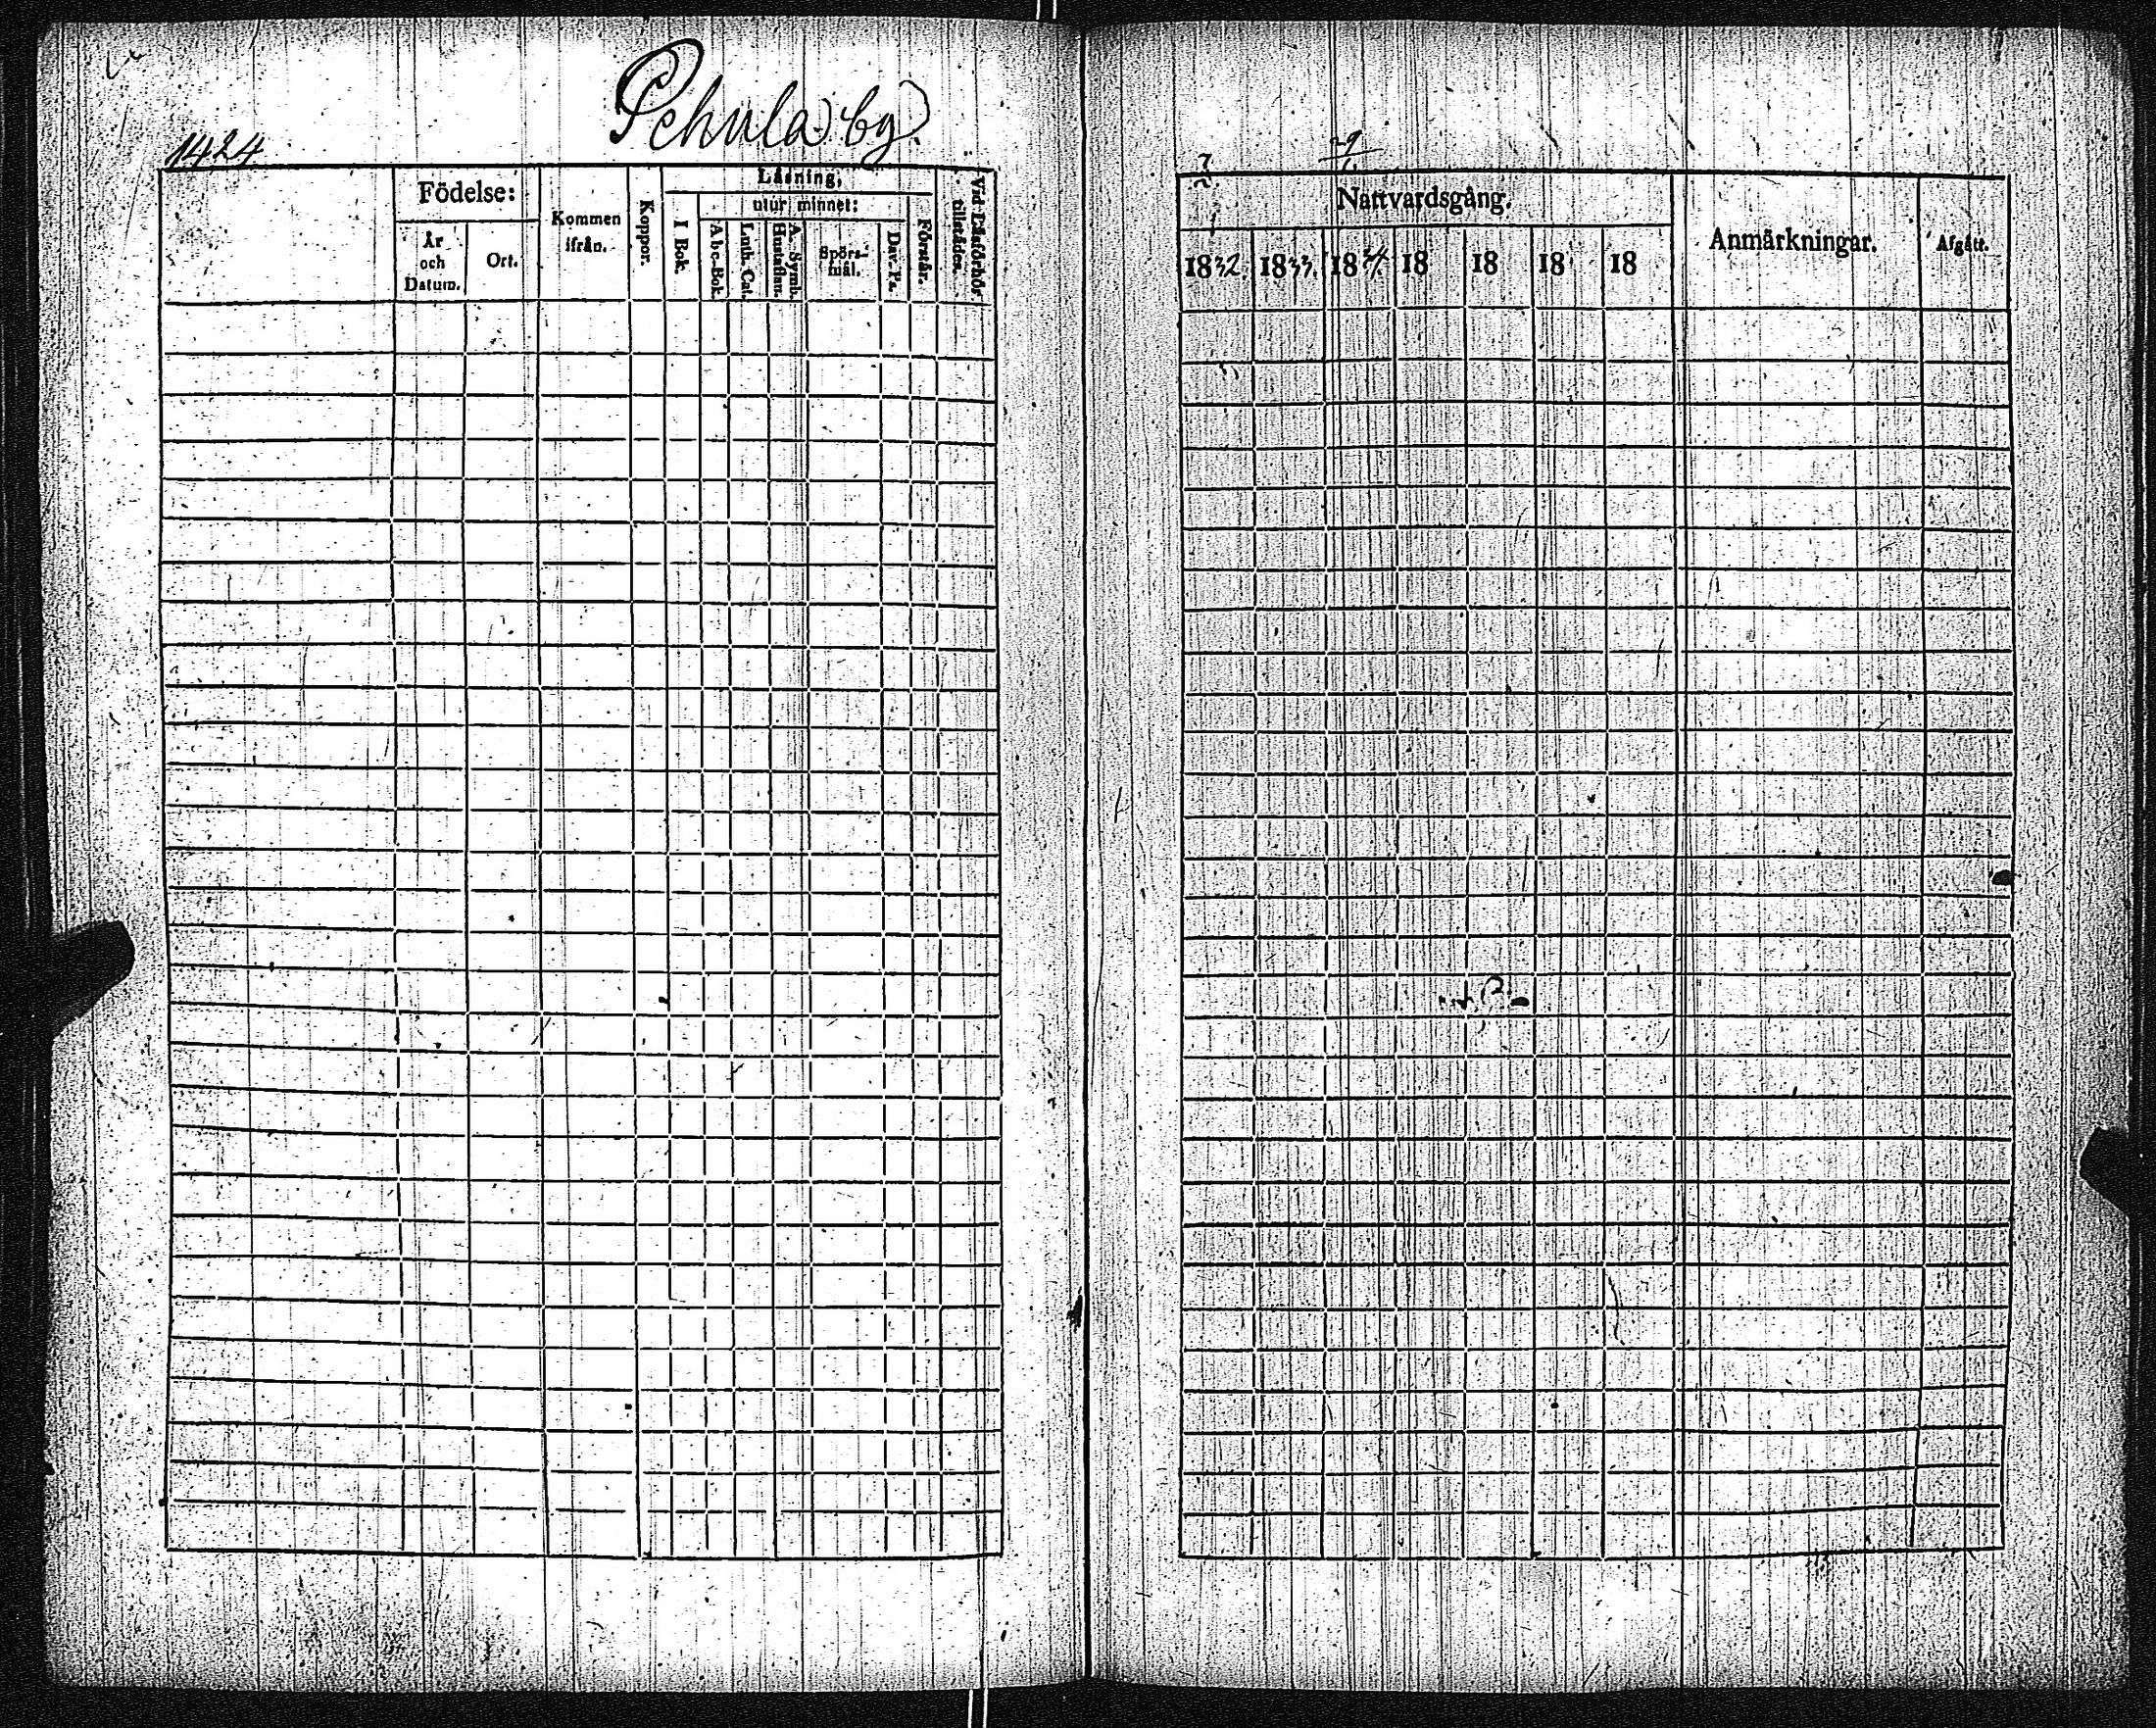 Pehula by.
1424
Födelse:
År och Datum.
Ort.
Kommen ifrån.
Koppor.
Läsning,
I Bok.
utur minnet:
Abc-Bok.
Luth. Cat.
A. Symb. Hustaflan.
Spörs-mål.
Dav. Ps.
Förstår.
Vid Läsförhör tillstädes.
29
Nattvardsgång.
1832. 1833. 1834. 18 18 18 18
Anmärkningar.
Afgått.